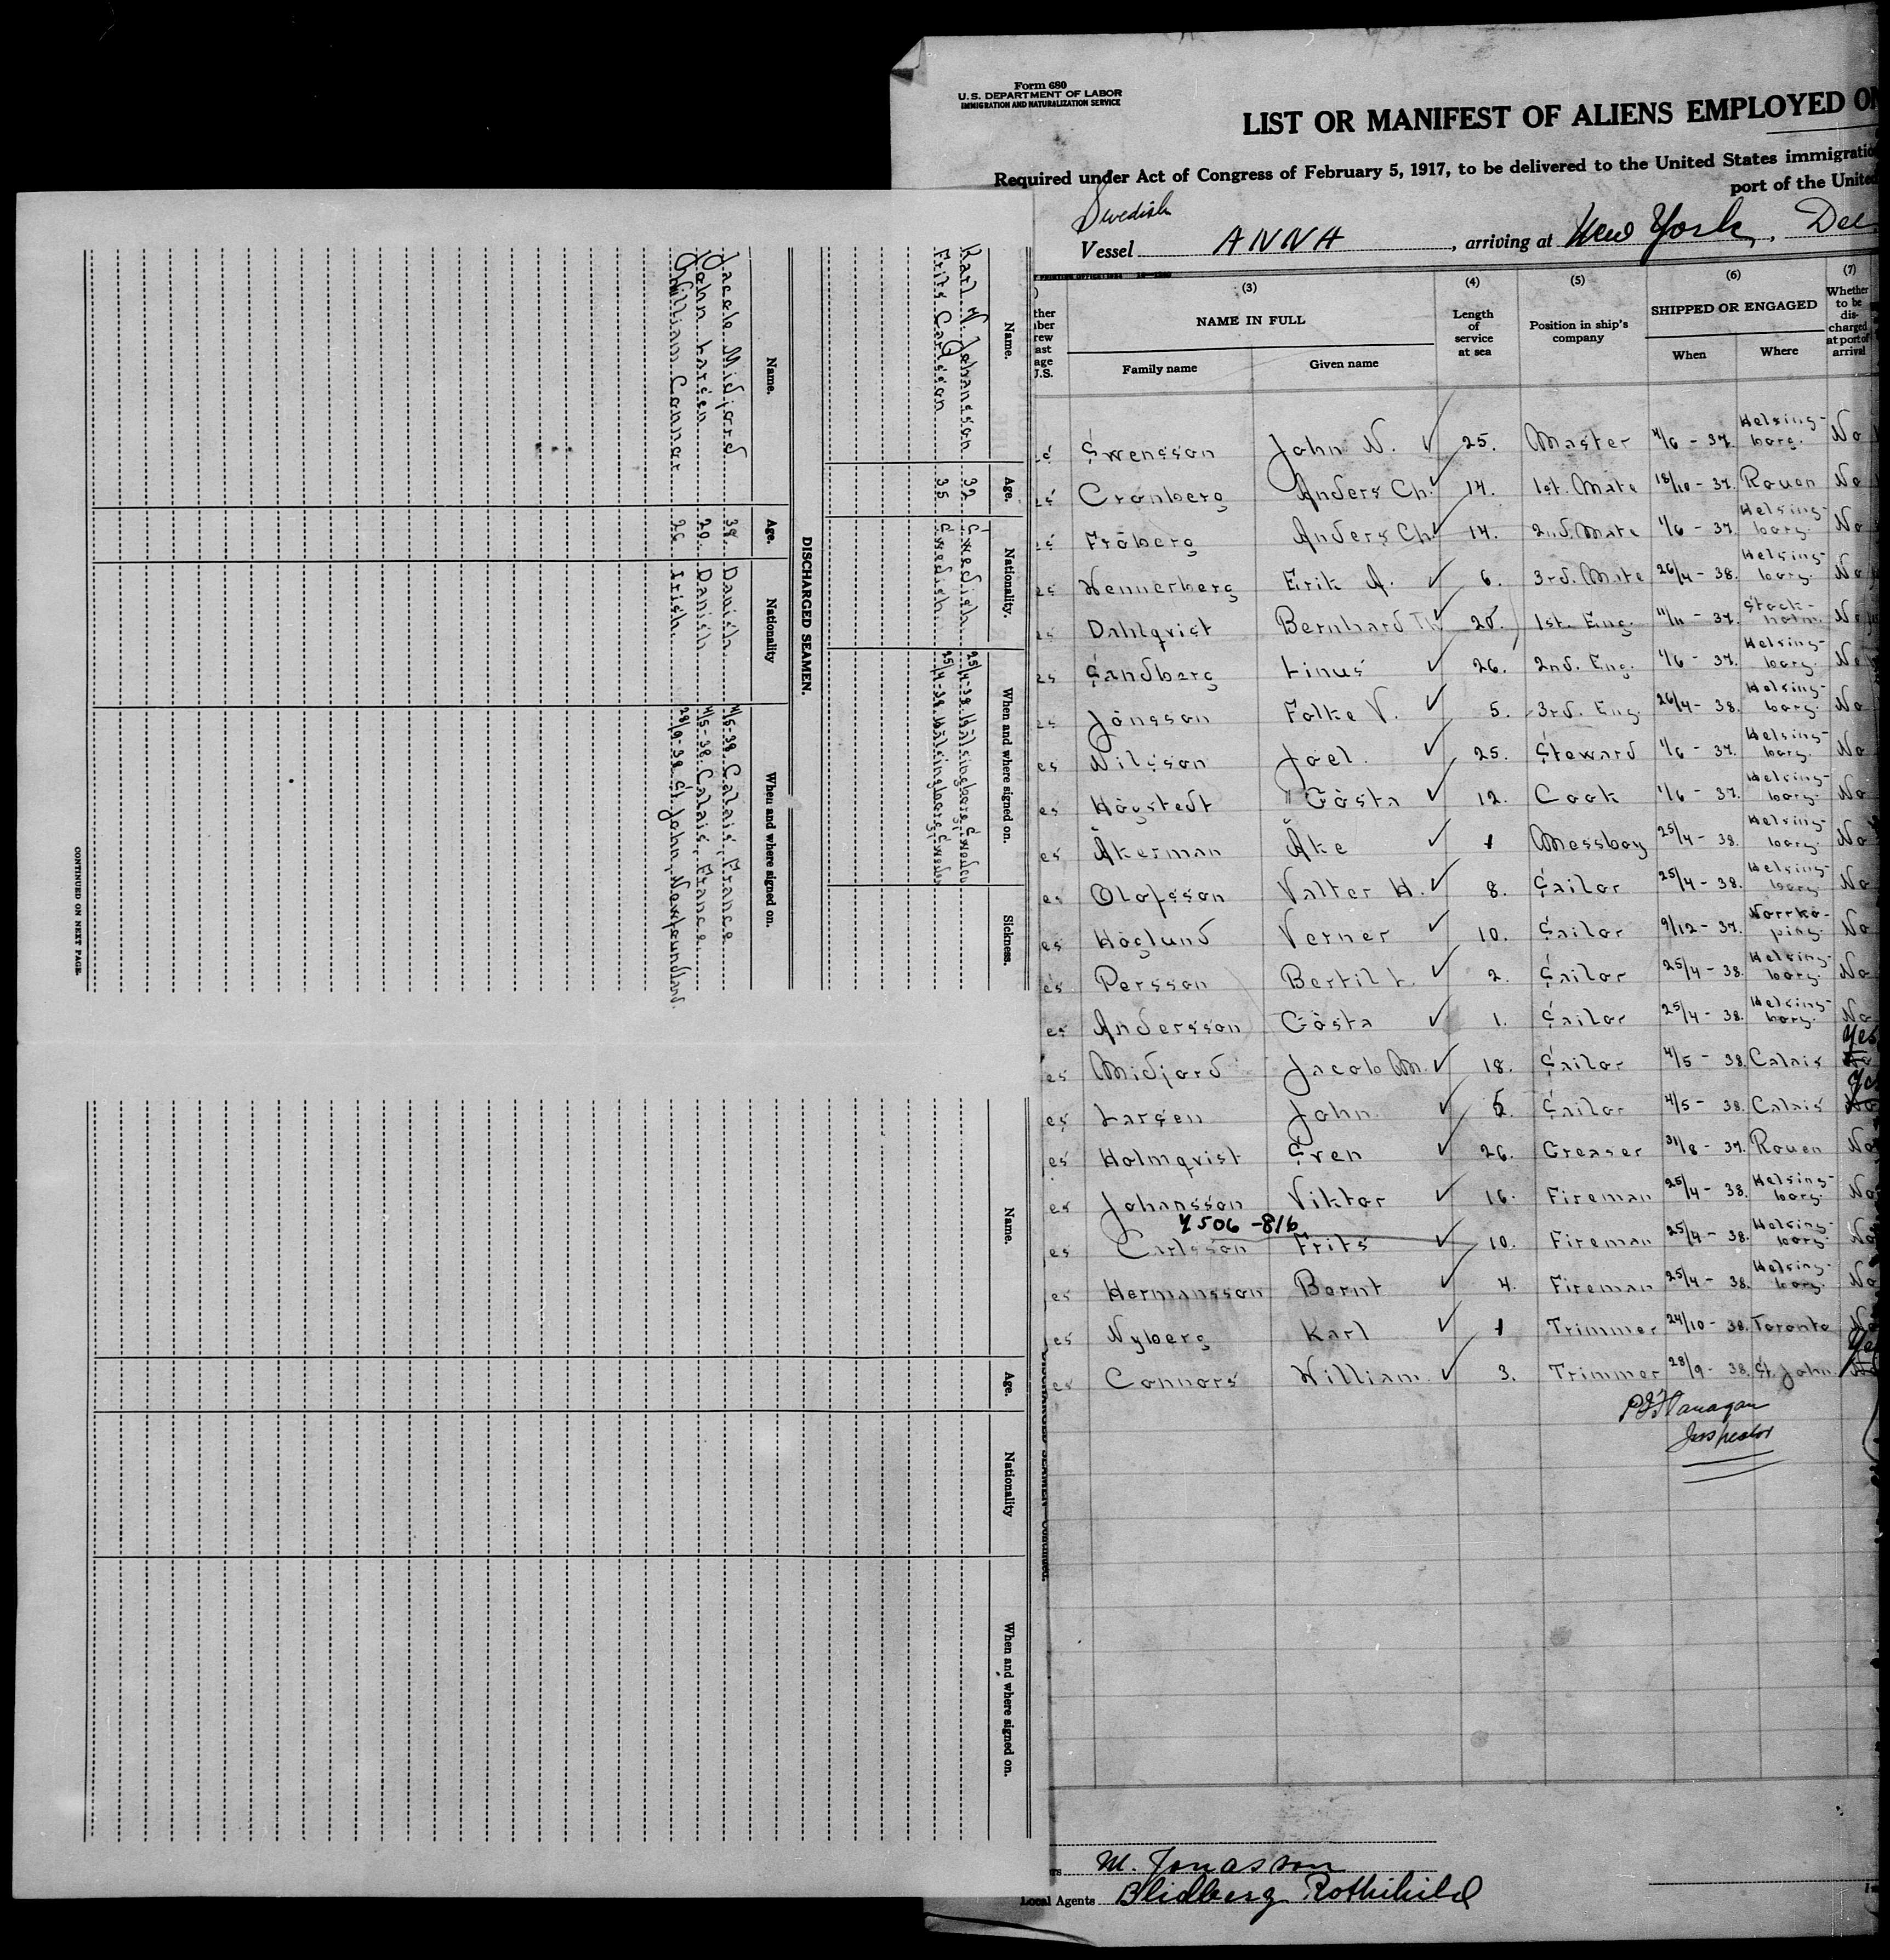 Form 680
U. S. DEPARTMENT OF LABOR
IMMIGRATION AND NATURALIZATION SERVICE
LIST OR MANIFEST OF ALIENS EMPLOYED O
Required under Act of Congress of February 5, 1917, to be delivered to the United States immigratio
port of the United
Swedish
Vessel ANNA, arriving at New York, Dec
(3) (4) (5) (6) (7)
NAME IN FULL Length of service at sea Position in ship's company SHIPPED OR ENGAGED Whether to be discharged at port of arrival
Family name Given name When Where
Swensson John N. 25. Master 1/6 - 37. Helsingborg. No
Cronberg Anders Ch. 14. 1st. Mate 18/10 - 37. Rouen No
Fröberg Anders Ch. 14. 2nd. Mate 1/6 - 37. Helsingborg. No
Hennerberg Erik A. 6. 3rd. Mate 26/4 - 38. Helsingborg. No
Dahlqvist Bernhard Th. 20. 1st. Eng. 11/11 - 37. Stockholm. No
Sandberg Linus 26. 2nd. Eng. 1/6 - 37. Helsingborg. No
Jönsson Folke V. 5. 3rd. Eng. 26/4 - 38. Helsingborg. No
Nilsson Joel. 25. Steward 1/6 - 37. Helsingborg. No
Högstedt Gösta 12. Cook 1/6 - 37. Helsingborg. No
Åkerman Åke 1 Messboy 25/4 - 38. Helsingborg. No
es Olofsson Valter H. 8. Sailor 25/4 - 38. Helsingborg. No
es Höglund Verner 10. Sailor 9/12 - 37. Norrköping. No
es Persson Bertil L. 2. Sailor 25/4 - 38. Helsingborg. No
es Andersson Gösta 1. Sailor 25/4 - 38. Helsingborg. No
es Midjord Jacob M. 18. Sailor 4/5 - 38. Calais No Yes
es Larsen John. 5. Sailor 4/5 - 38. Calais No Yes
es Holmqvist Sven 26. Greaser 31/8 - 37. Rouen No
es Johansson Viktor 16. Fireman 25/4 - 38. Helsingborg. No
4506-816
es Carlsson Frits 10. Fireman 25/4 - 38. Helsingborg No
es Hermansson Bernt 4. Fireman 25/4 - 38. Helsingborg. No
es Nyberg Karl 1 Trimmer 24/10 - 38. Toronto No
es Connors William. 3. Trimmer 28/9 - 38. St. John. No Yes
P J Flanagan
Inspector
M. Jonasson
Local Agents Blidberg Rothchild
Name. Age. Nationality. When and where signed on. Sickness.
Karl V. Johansson 32 Swedish 25/4-38. Hälsingborg, Sweden
Frits Carlsson 35 Swedish. 25/4-38. Hälsingborg, Sweden
DISCHARGED SEAMEN.
Name. Age. Nationality When and where signed on.
Jacob Midjord 38. Danish 4/5-38. Calais, France
John Larsen 20. Danish 4/5-38. Calais, France.
William Connor 26 Irish. 28/9-38. St. John, Newfoundland.
CONTINUED ON NEXT PAGE.
Name. Age. Nationality When and where signed on.